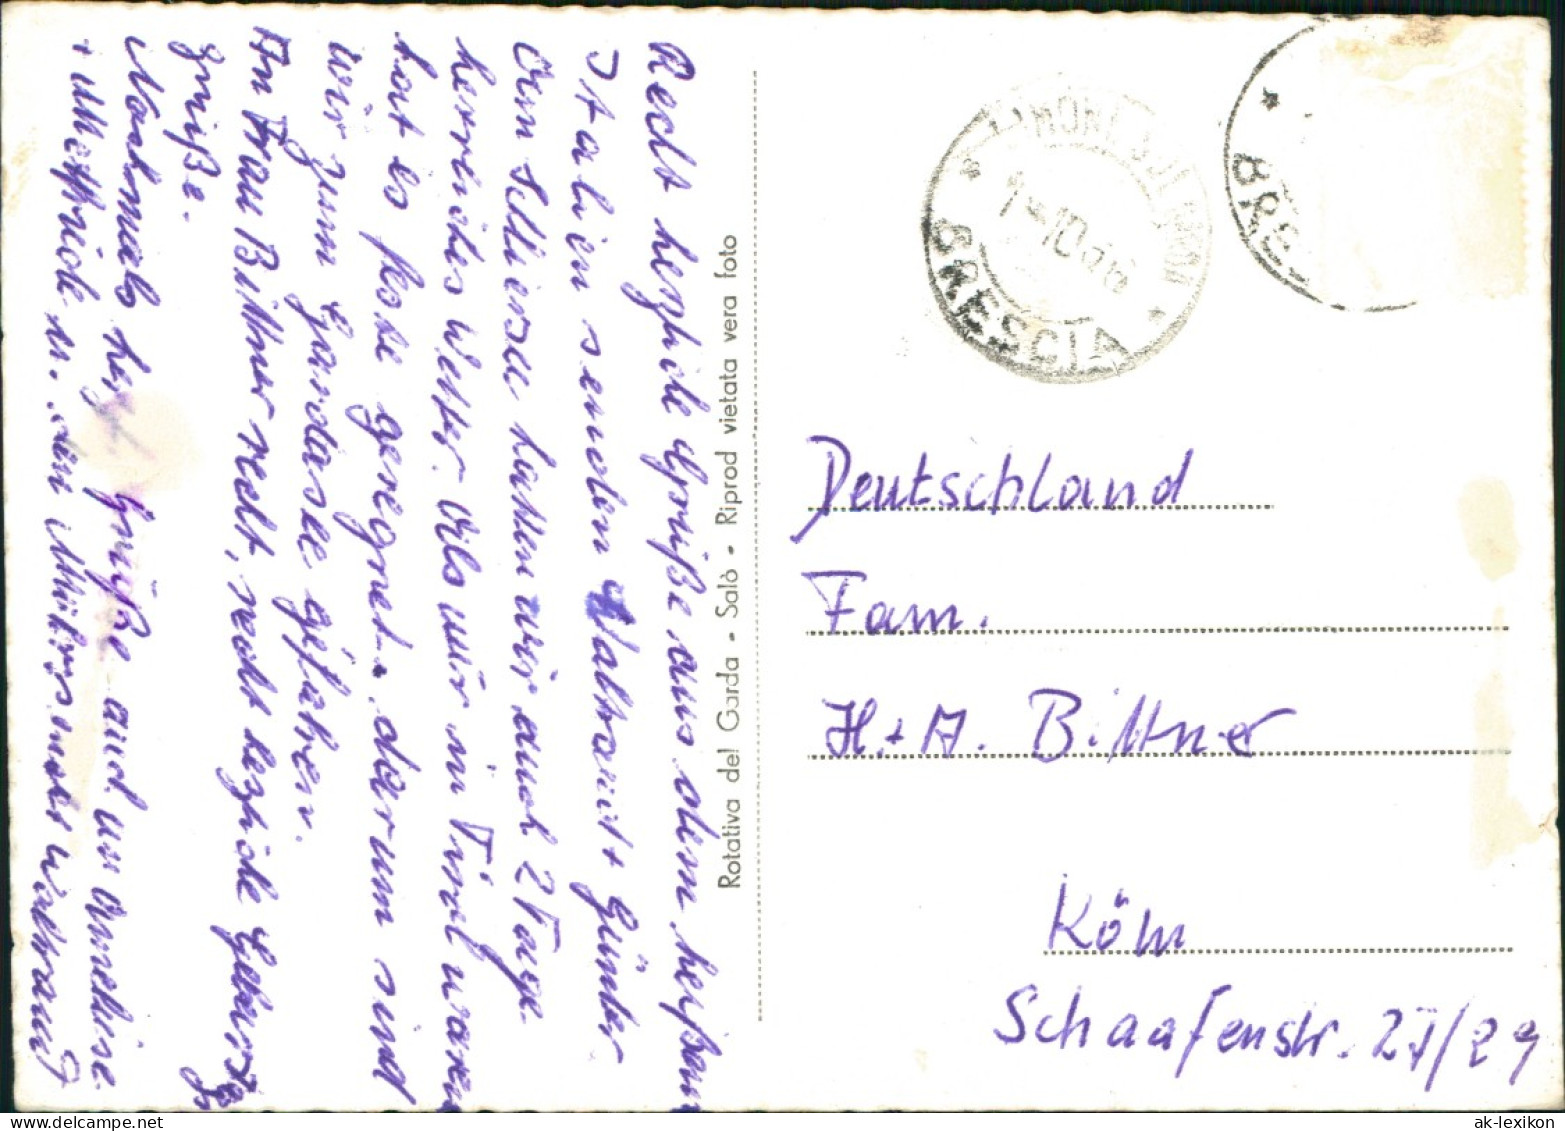 Recht herzliche Grüße aus dem heißen
Italien senden Waltraud + Günter
Am Schliersee hatten wir auch 2 Tage
herrliches Wetter. Als wir in Tirol waren
hat es feste geregnet, darum sind
wir zum Gardasee gefahren.
An Frau Bittner recht, recht herzliche Geburtstags
grüße.
Nochmals herzl. Grüße auch an Anneliese
+ Mettfriede u. den Waltraud
Rotativa del Garda - Salò - Riprod vietata vera foto
LIMONE SUL GARDA
1-10.66
BRESCIA
BRES
Deutschland
Fam.
H. + A. Bittner
Köln
Schaafenstr. 27/29
ak-lexikon